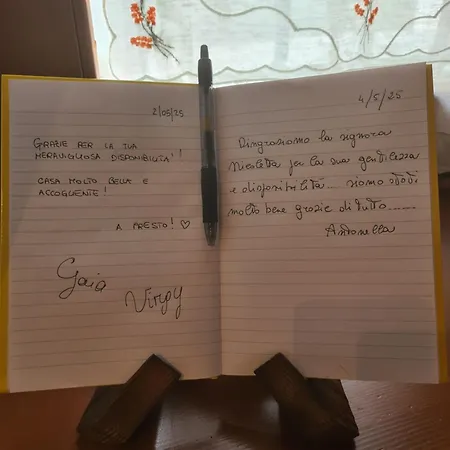 2/05/25
GRAZIE PER LA TUA
MERAVIGLIOSA DISPONIBILITÀ!
CASA MOLTO BELLA E
ACCOGLIENTE!
A PRESTO! ♡
Gaia
Virgy
4/5/25
Ringraziamo la signora
Nicoletta per la sua gentilezza
e disponibilità... siamo stati
molto bene grazie di tutto.......
Antonella